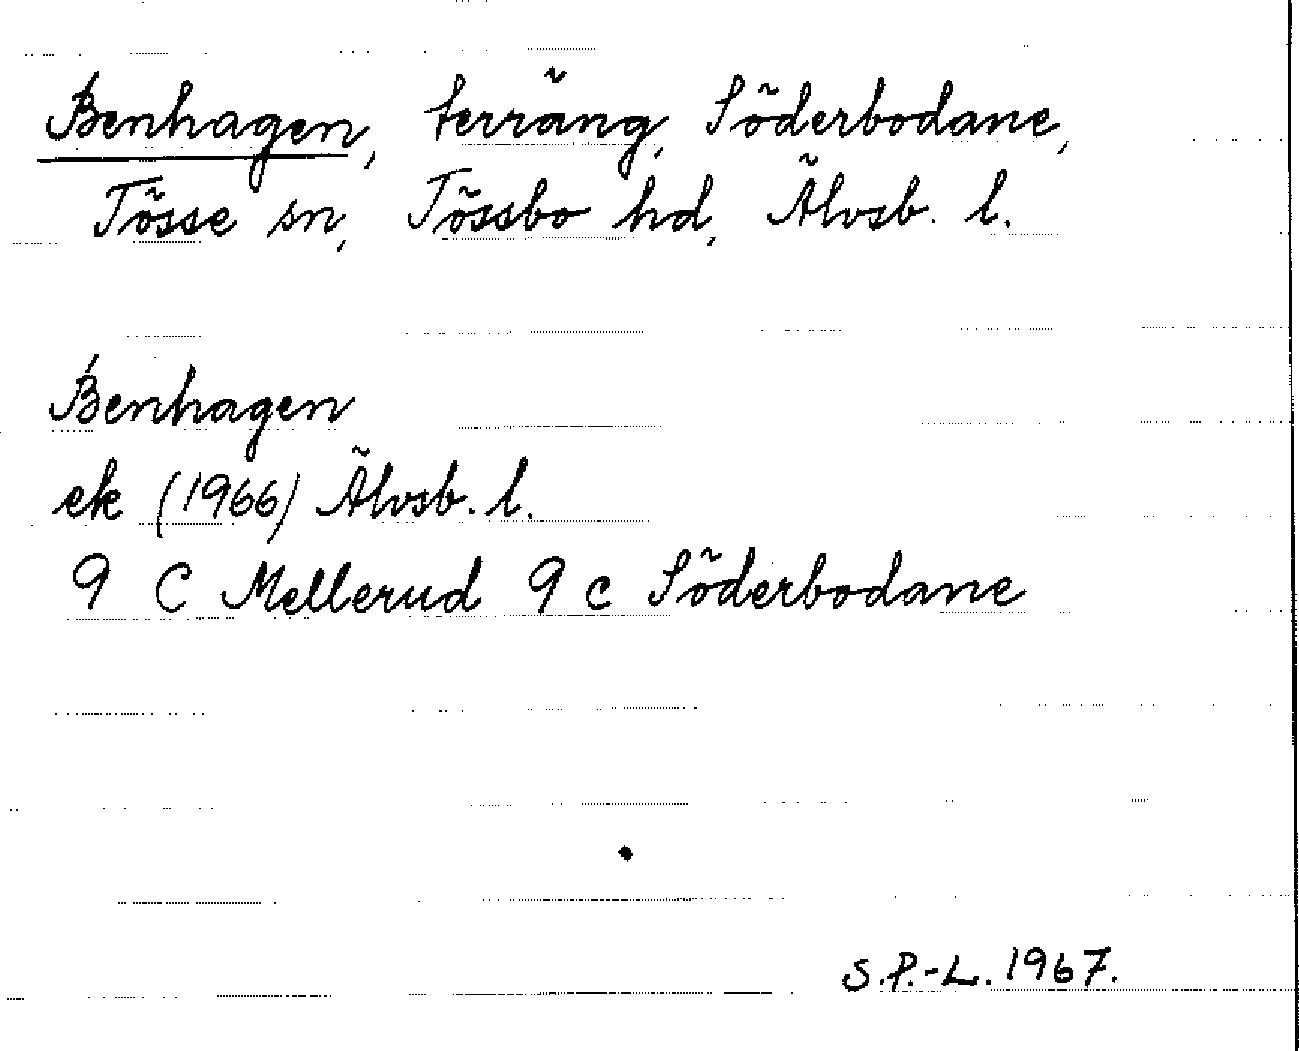 Benhagen, terräng, Söderbodane,
Tösse sn, Tössbo hd, Älvsb. l.
Benhagen
ek (1966) Älvsb. l.
9 C Mellerud 9 c Söderbodane
S.P.-L. 1967.